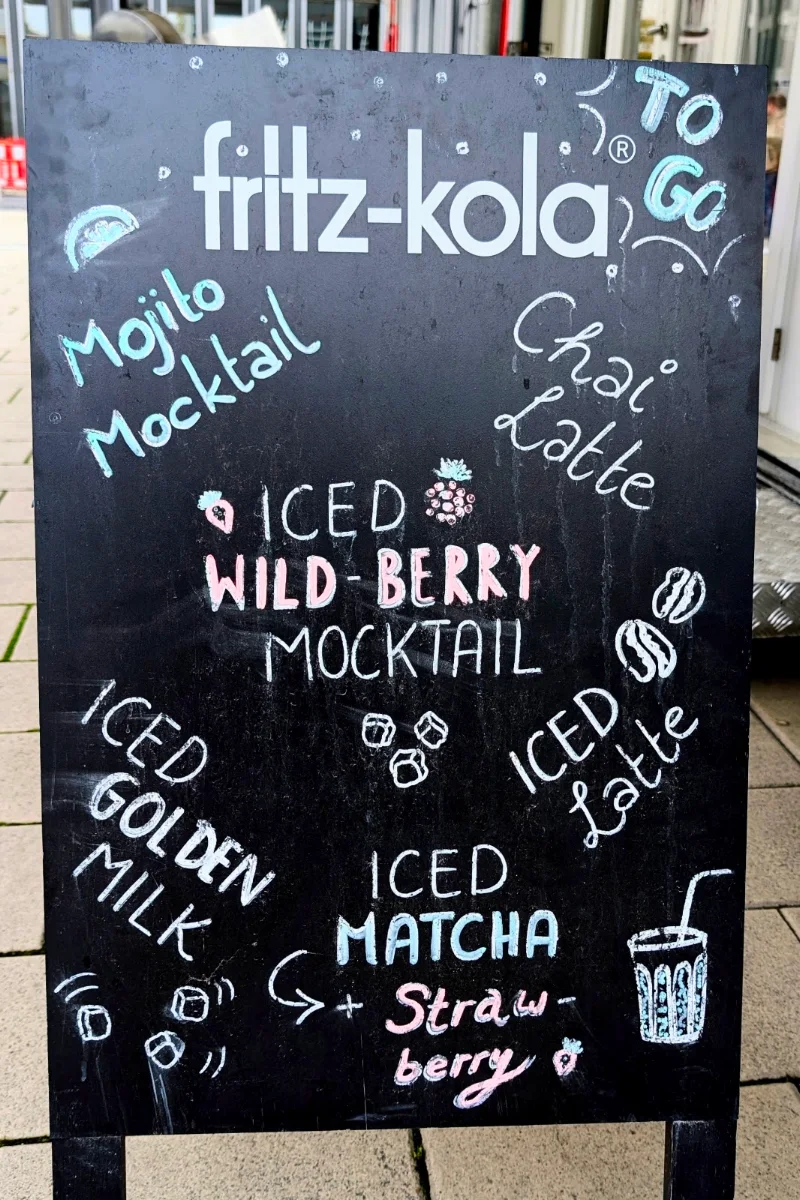 TO
GO
fritz-kola®
Mojito
Mocktail
Chai
Latte
ICED
WILD-BERRY
MOCKTAIL
ICED
Latte
ICED
GOLDEN
MILK
ICED
MATCHA
+ Straw-
berry